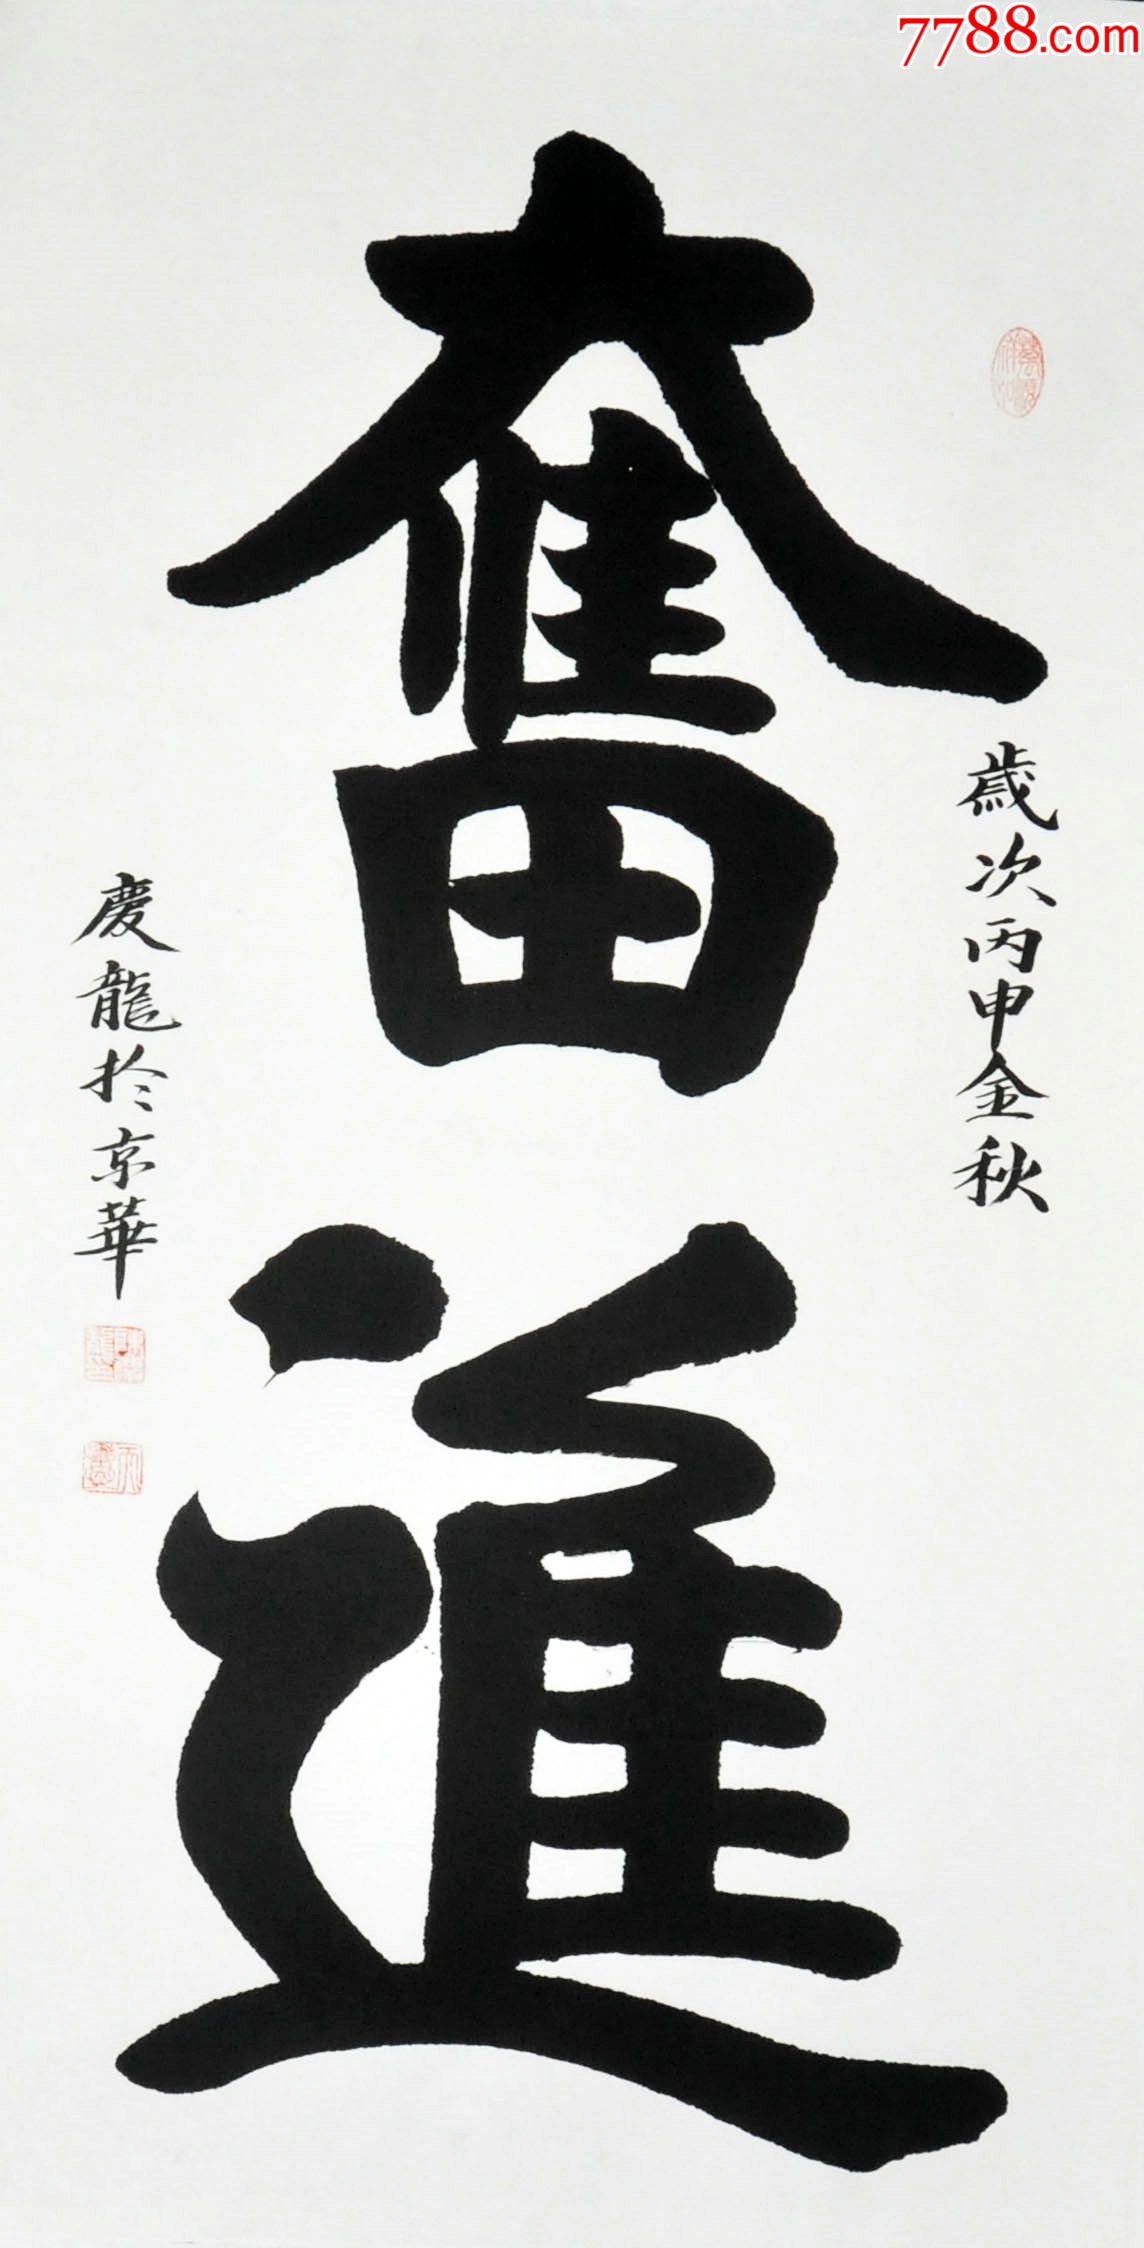 7788.com
奮進
歲次丙申金秋
慶龍於京華